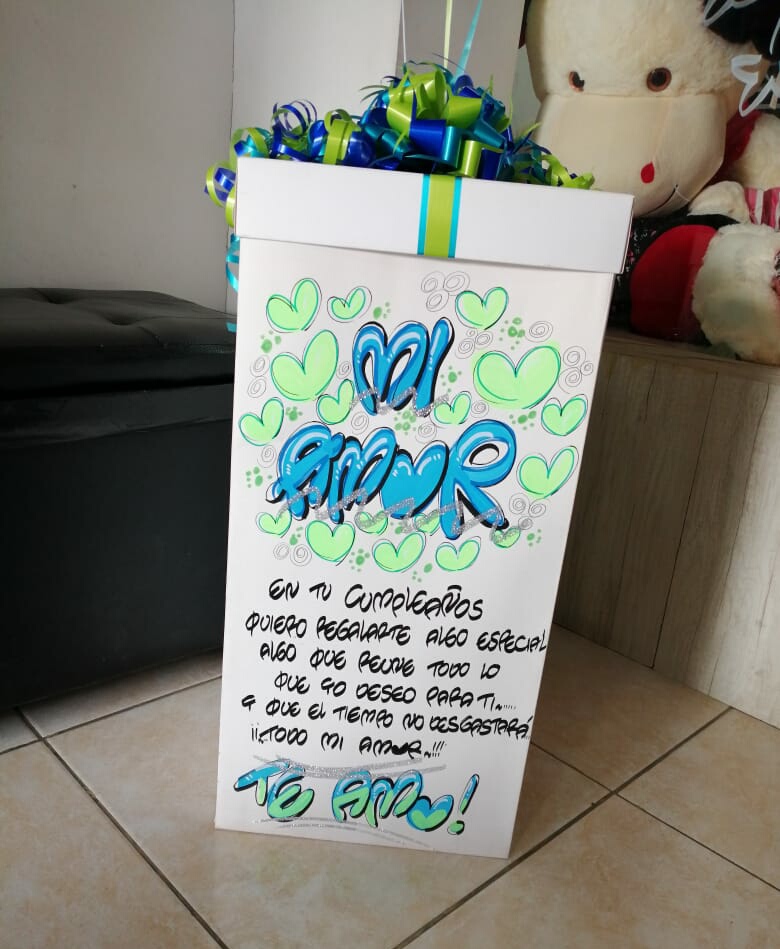 MI
AMOR
EN TU CUMPLEAÑOS
QUIERO REGALARTE ALGO ESPECIAL
ALGO QUE REUNE TODO LO
QUE YO DESEO PARA TI......
Y QUE EL TIEMPO NO DESGASTARÁ..
¡¡..TODO MI AMOR..!!!
TE AMO!